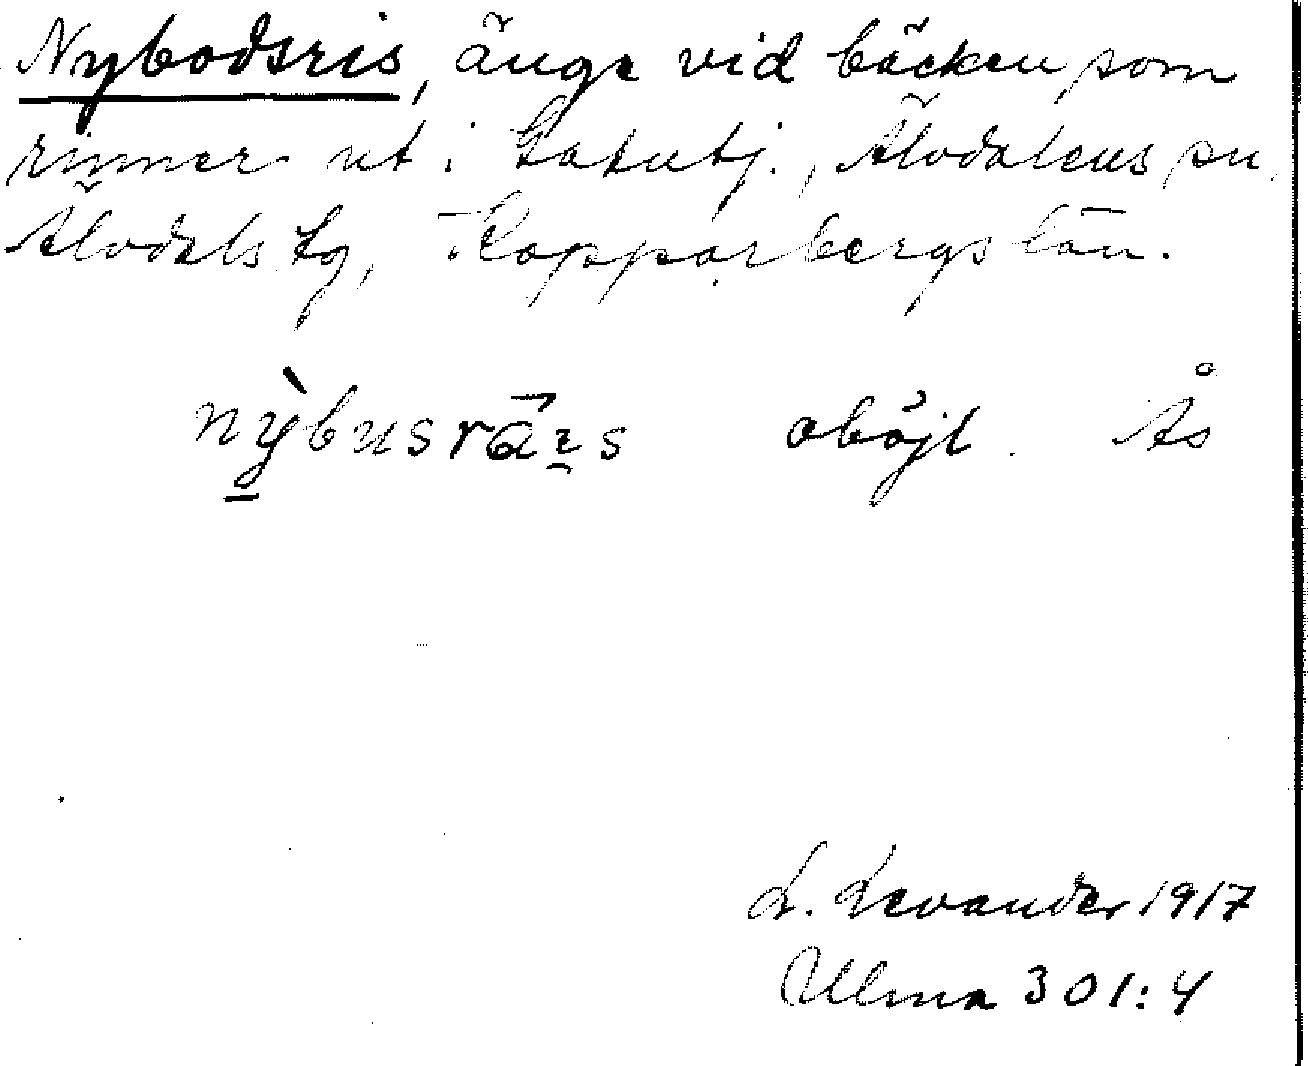 Nybodsris, änge vid bäcken, som
rinner ut i Gatutj., Älvdalens sn,
Älvdals tg, Kopparbergs län.
nỳbusrāi̯s oböjl. Ås
L. Levander 1917
Ulma 301:4